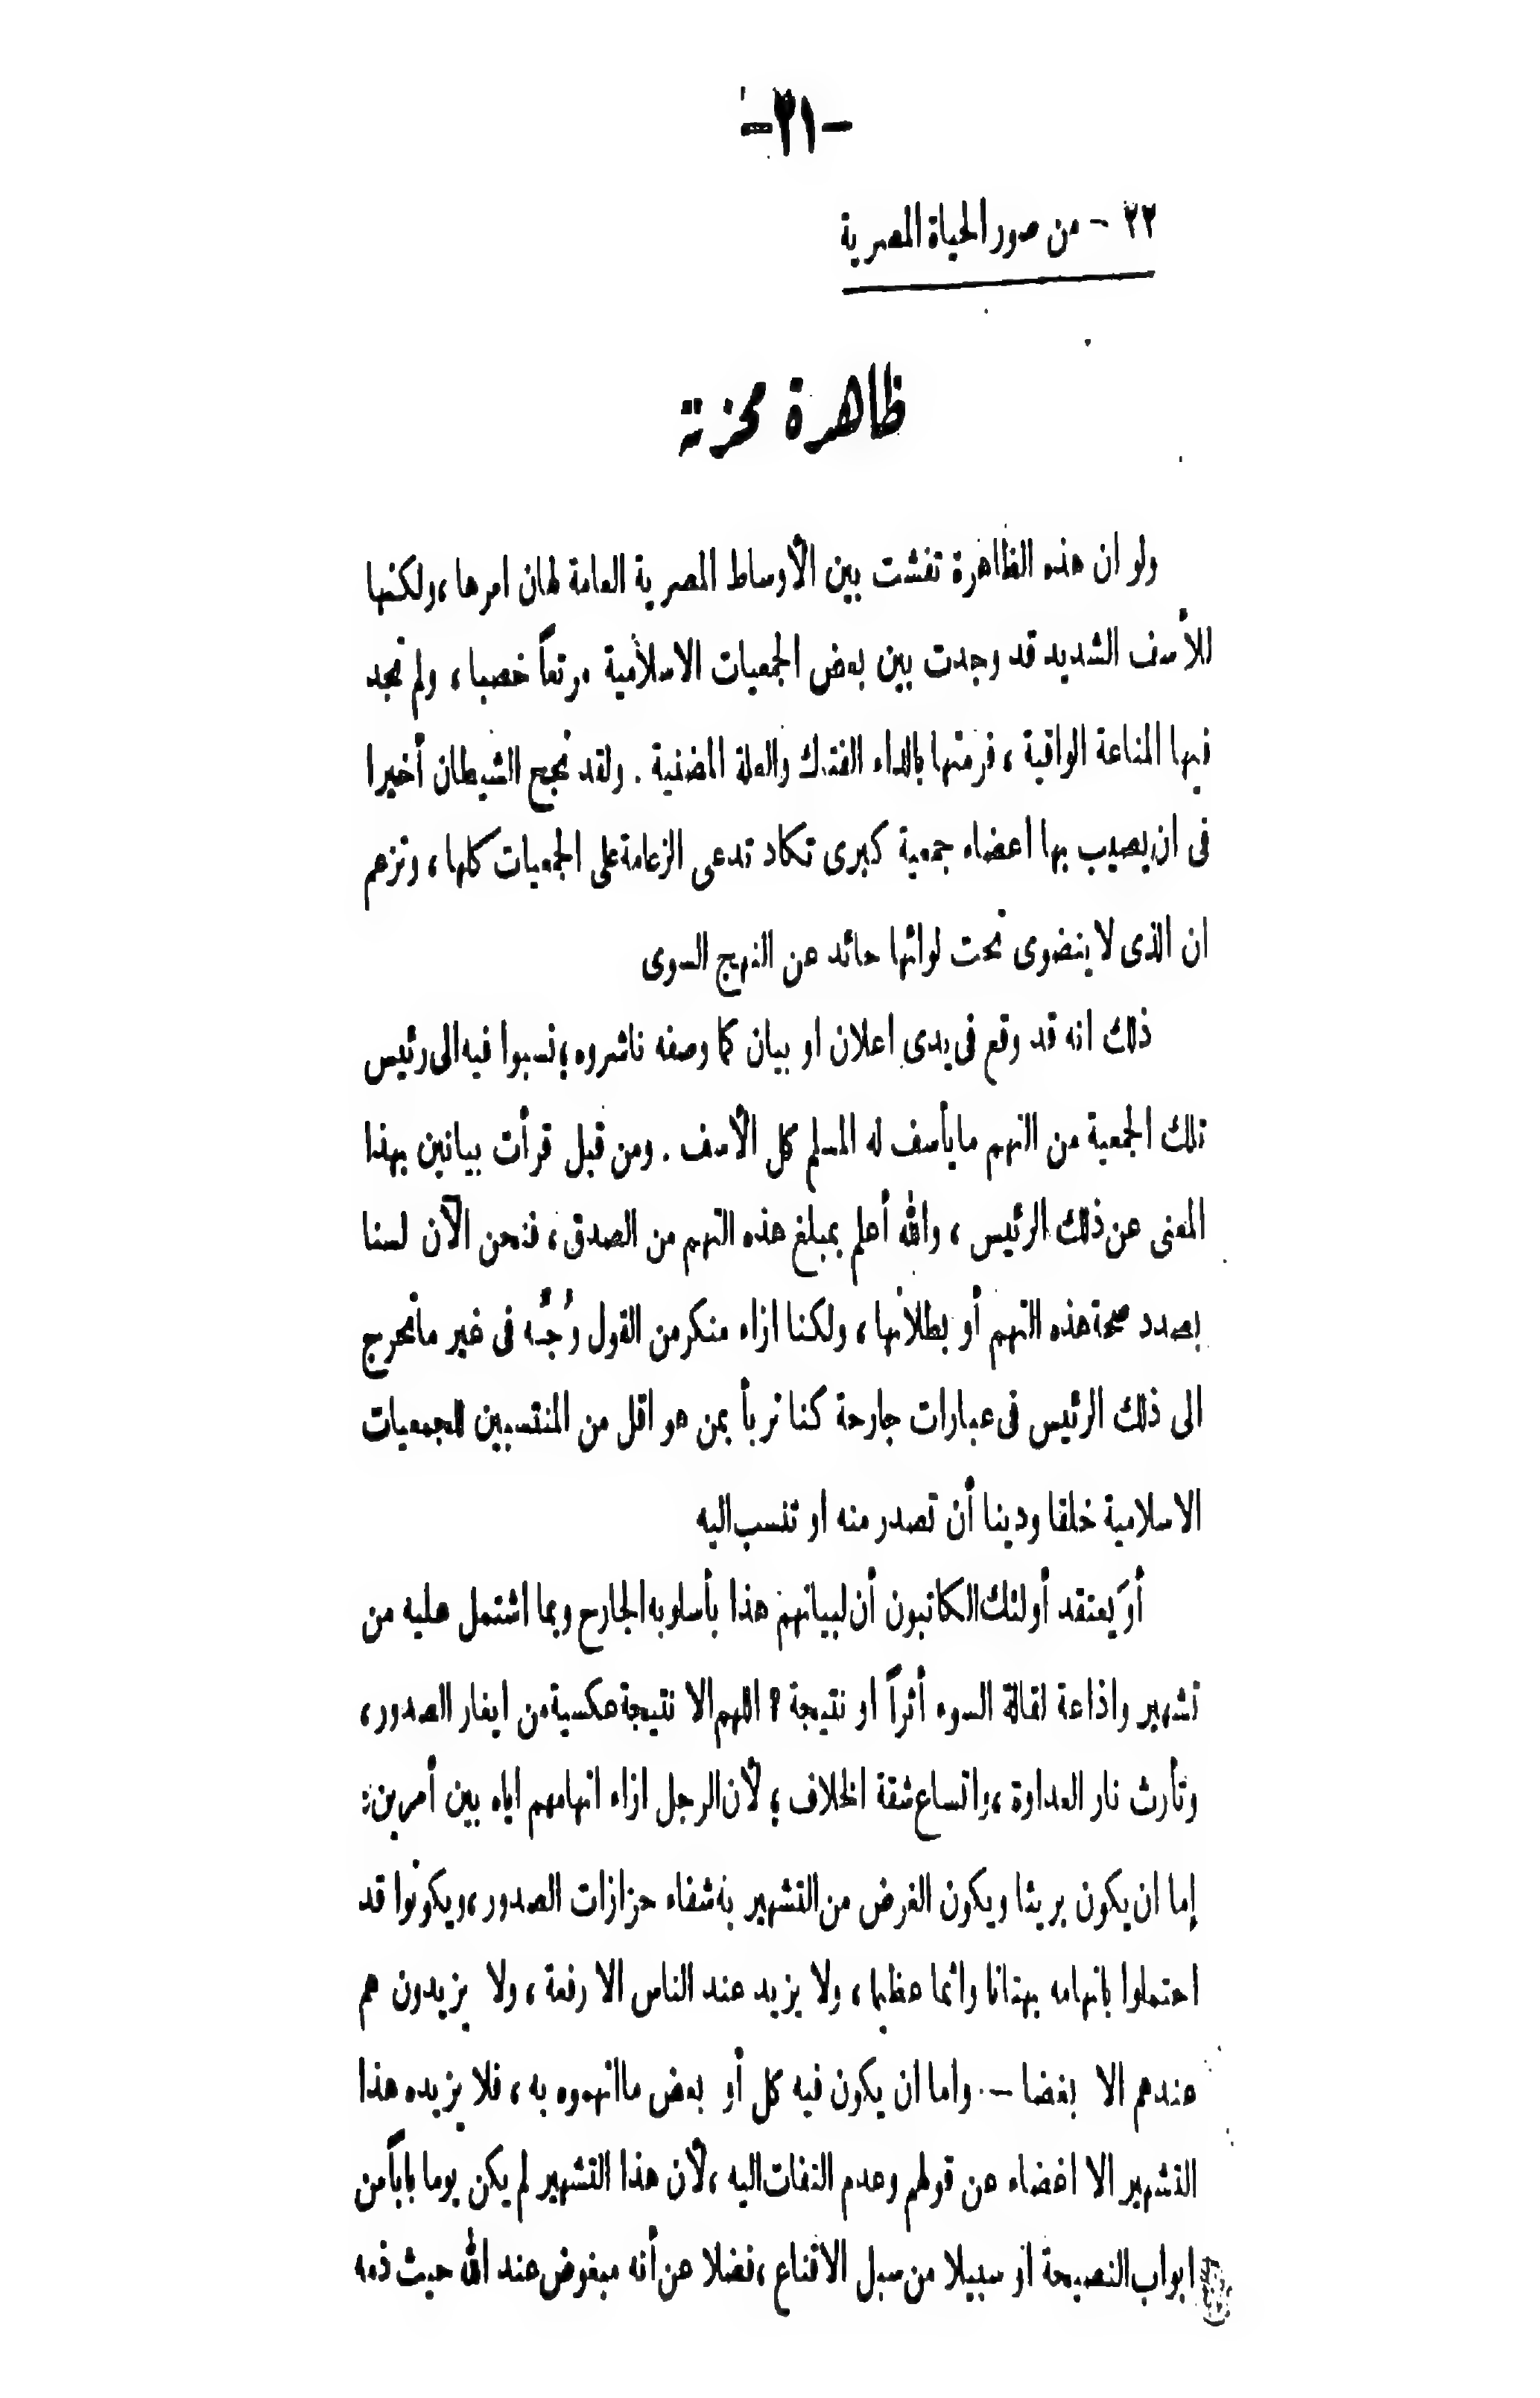 -٢١-
٢٢ - من صور الحياة المصرية
ظاهرة محزنة
ولو ان هذه الظاهرة تفشت بين الأوساط المصرية العامة لهان امرها، ولكنها
للأسف الشديد قد وجدت بين بعض الجمعيات الاسلامية مرتعاً خصبا، ولم تجد
فيها المناعة الواقية، فرمتها بالداء الفتاك والعلة المضنية. ولقد نجح الشيطان أخيرا
فى ان يصيب بها اعضاء جمعية كبرى تكاد تدعى الزعامة على الجمعيات كلها، وتزعم
ان الذى لا ينضوى تحت لوائها حائد عن النهج السوى
ذلك انه قد وقع فى يدى اعلان او بيان كما وصفه ناشروه؛ نسبوا فيه الى رئيس
تلك الجمعية من التهم ما يأسف له المسلم كل الأسف. ومن قبل قرأت بيانين بهذا
المعنى عن ذلك الرئيس، والله أعلم بمبلغ هذه التهم من الصدق، فنحن الآن لسنا
بصدد صحة هذه التهم أو بطلانها، ولكنا ازاء منكر من القول وُجِّه فى غير ما تحرج
الى ذلك الرئيس فى عبارات جارحة كنا نربأ بمن هو اقل من المنتسبين للجمعيات
الاسلامية خلقا ودينا أن تصدر منه او تنسب اليه
أوَ يعتقد أولئك الكاتبون أن لبيانهم هذا بأسلوبه الجارح وبما اشتمل عليه من
تشهير واذاعة لقالة السوء أثراً او نتيجة ؟ اللهم الا نتيجة عكسية من ايغار الصدور،
وتأرث نار العداوة، واتساع شقة الخلاف؛ لأن الرجل ازاء اتهامهم اياه بين أمرين:
إما ان يكون بريئا ويكون الغرض من التشهير به شفاء حزازات الصدور، ويكونوا قد
احتملوا باتهامه بهتانا واثما عظيما، ولا يزيد عند الناس الا رفعة، ولا يزيدون هم
عندهم الا بغضا - واما ان يكون فيه كل أو بعض ما اتهموه به، فلا يزيده هذا
التشهير الا اغضاء عن قولهم وعدم التفات اليه، لأن هذا التشهير لم يكن يوما باباً من
ابواب النصيحة او سبيلا من سبل الاقناع، فضلا عن أنه مبغوض عند الله حيث ذمه